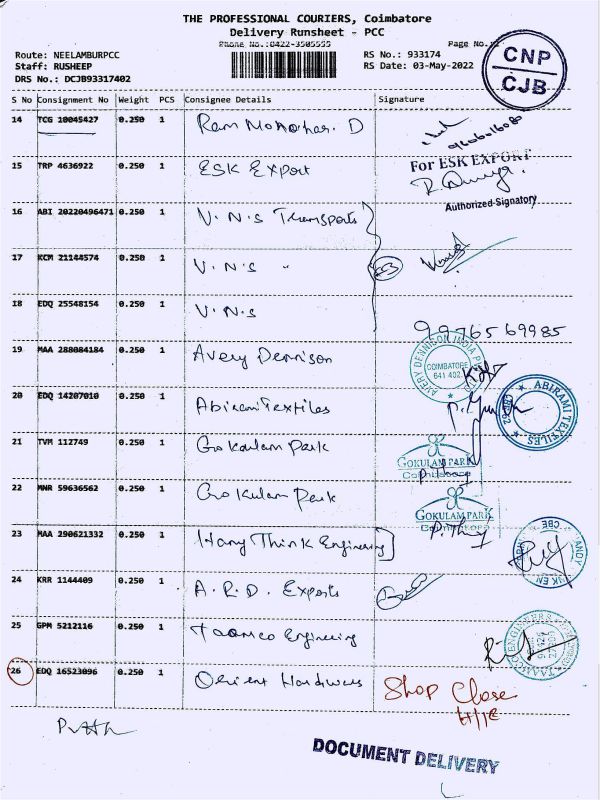 THE PROFESSIONAL COURIERS, Coimbatore
Delivery Runsheet - PCC
Phone No.:0422-3505555
Page No.:
Route: NEELAMBURPCC
RS No.: 933174
Staff: RUSHEEP
RS Date: 03-May-2022
DRS No.: DCJB93317402
CNP
CJB
S No Consignment No Weight PCS Consignee Details Signature
14 TCG 10045427 0.250 1 Ram Manohar. D
15 TRP 4636922 0.250 1 ESK Export
For ESK EXPORT
Authorized Signatory
16 ABI 20220496471 0.250 1 V. N. S Transports
17 KCM 21144574 0.250 1 V. N. S "
18 EDQ 25548154 0.250 1 V. N. S
9976569985
19 MAA 288084184 0.250 1 Avery Dennison
AVERY DENNISON INDIA
COIMBATORE
641 402
20 EDQ 14207010 0.250 1 Abirami Textiles
ABIRAMI TEXTILES
21 TVM 112749 0.250 1 Gokulam Park
GOKULAM PARK
Coimbatore
22 MNR 59636562 0.250 1 Gokulam Park
GOKULAM PARK
Coimbatore
23 MAA 290621332 0.250 1 Hany Think Engineering
CBE
24 KRR 1144409 0.250 1 A. R. D. Exports
25 GPM 5212116 0.250 1 Taamco Engineering
26 EDQ 16523096 0.250 1 Orient Hardwares Shop Close
DOCUMENT DELIVERY